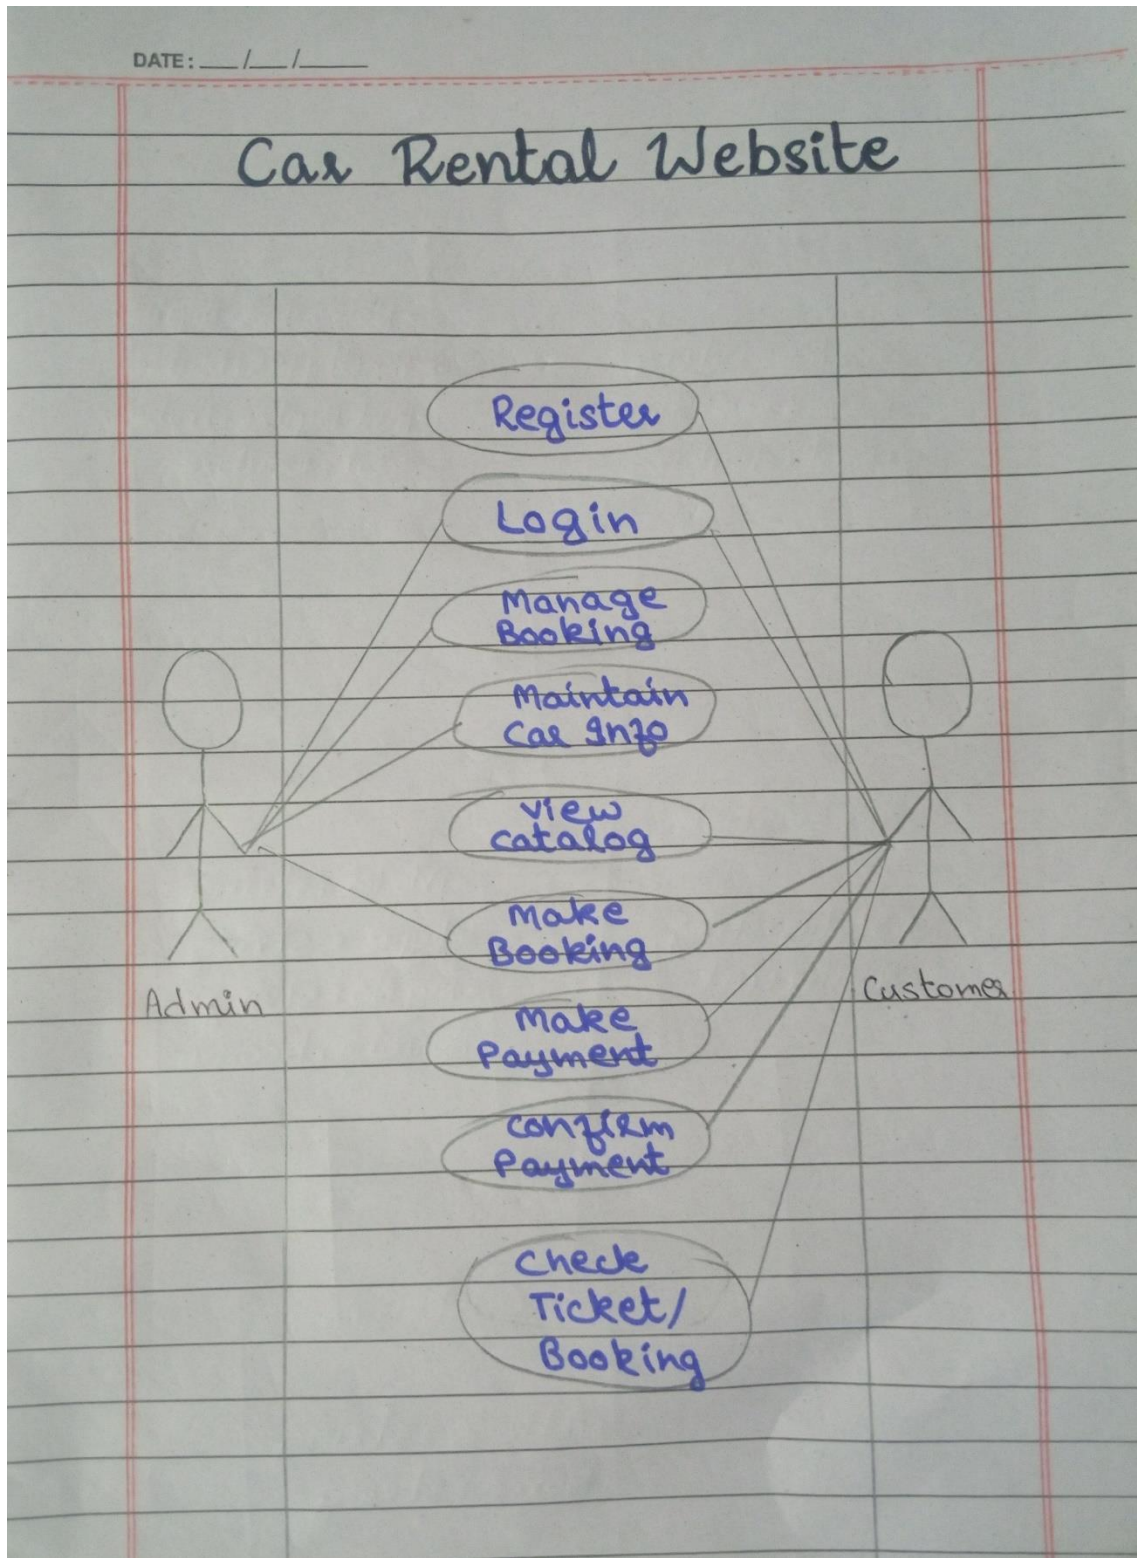 DATE: __/__/____
Car Rental Website
Register
Login
Manage
Booking
Maintain
Car Info
View
Catalog
Make
Booking
Admin
Customer
Make
Payment
Confirm
Payment
Check
Ticket/
Booking